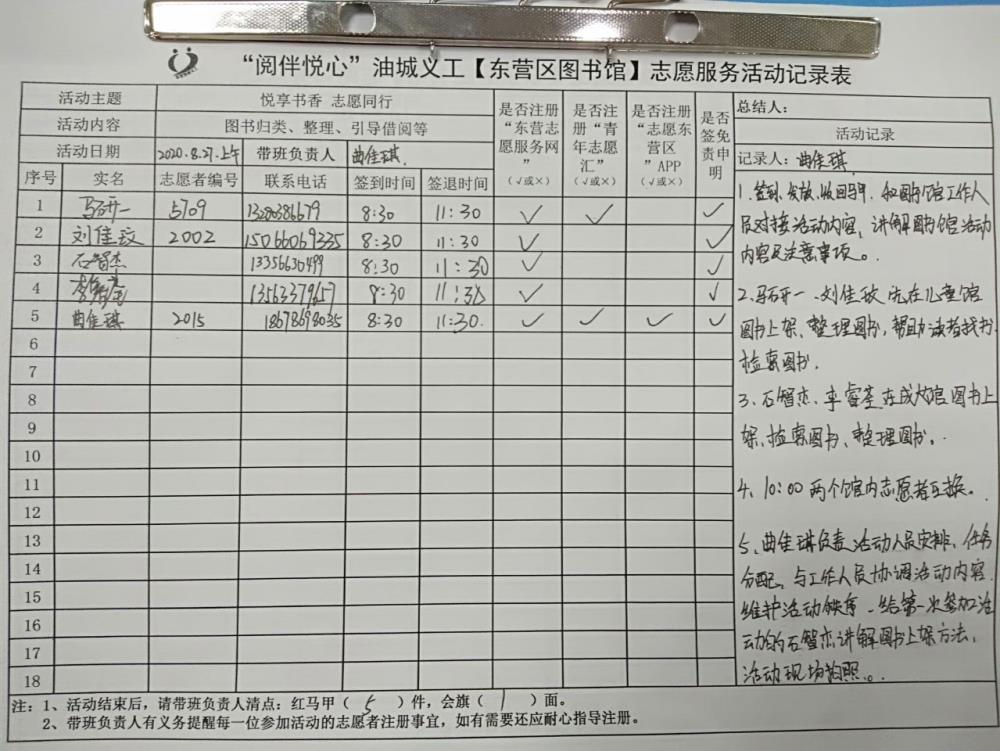 “阅伴悦心”油城义工【东营区图书馆】志愿服务活动记录表
活动主题 悦享书香 志愿同行
活动内容 图书归类、整理、引导借阅等
活动日期 2020.8.27.上午 带班负责人 曲佳琪
是否注册“东营志愿服务网”(√或×) 是否注册“青年志愿汇”(√或×) 是否注册“志愿东营区”APP(√或×) 是否签免责申明
序号 实名 志愿者编号 联系电话 签到时间 签退时间
1 马石开一 5709 13280386679 8:30 11:30 √ √ √
2 刘佳玟 2002 15066069335 8:30 11:30 √ √
3 石智杰 13356630499 8:30 11:30 √ √
4 13563379657 8:30 11:30 √ √
5 曲佳琪 2015 18678698035 8:30 11:30. √ √ √ √
6
7
8
9
10
11
12
13
14
15
16
17
18
总结人:
活动记录
记录人: 曲佳琪
1.签到、发放、收回马甲,和图书馆工作人
员对接活动内容,讲解图书馆活动
内容及注意事项。
2.马石开一、刘佳玟先在儿童馆
图书上架、整理图书,帮助读者找书、
检索图书.
3、石智杰、李睿荃在成人馆图书上
架、检索图书、整理图书。
4、10:00两个馆内志愿者互换。
5、曲佳琪负责活动人员安排、任务
分配、与工作人员协调活动内容.
维护活动秩序、给第一次参加活
动的石智杰讲解图书上架方法,
活动现场拍照。
注:1、活动结束后,请带班负责人清点:红马甲( 5 )件,会旗( 1 )面。
2、带班负责人有义务提醒每一位参加活动的志愿者注册事宜,如有需要还应耐心指导注册。